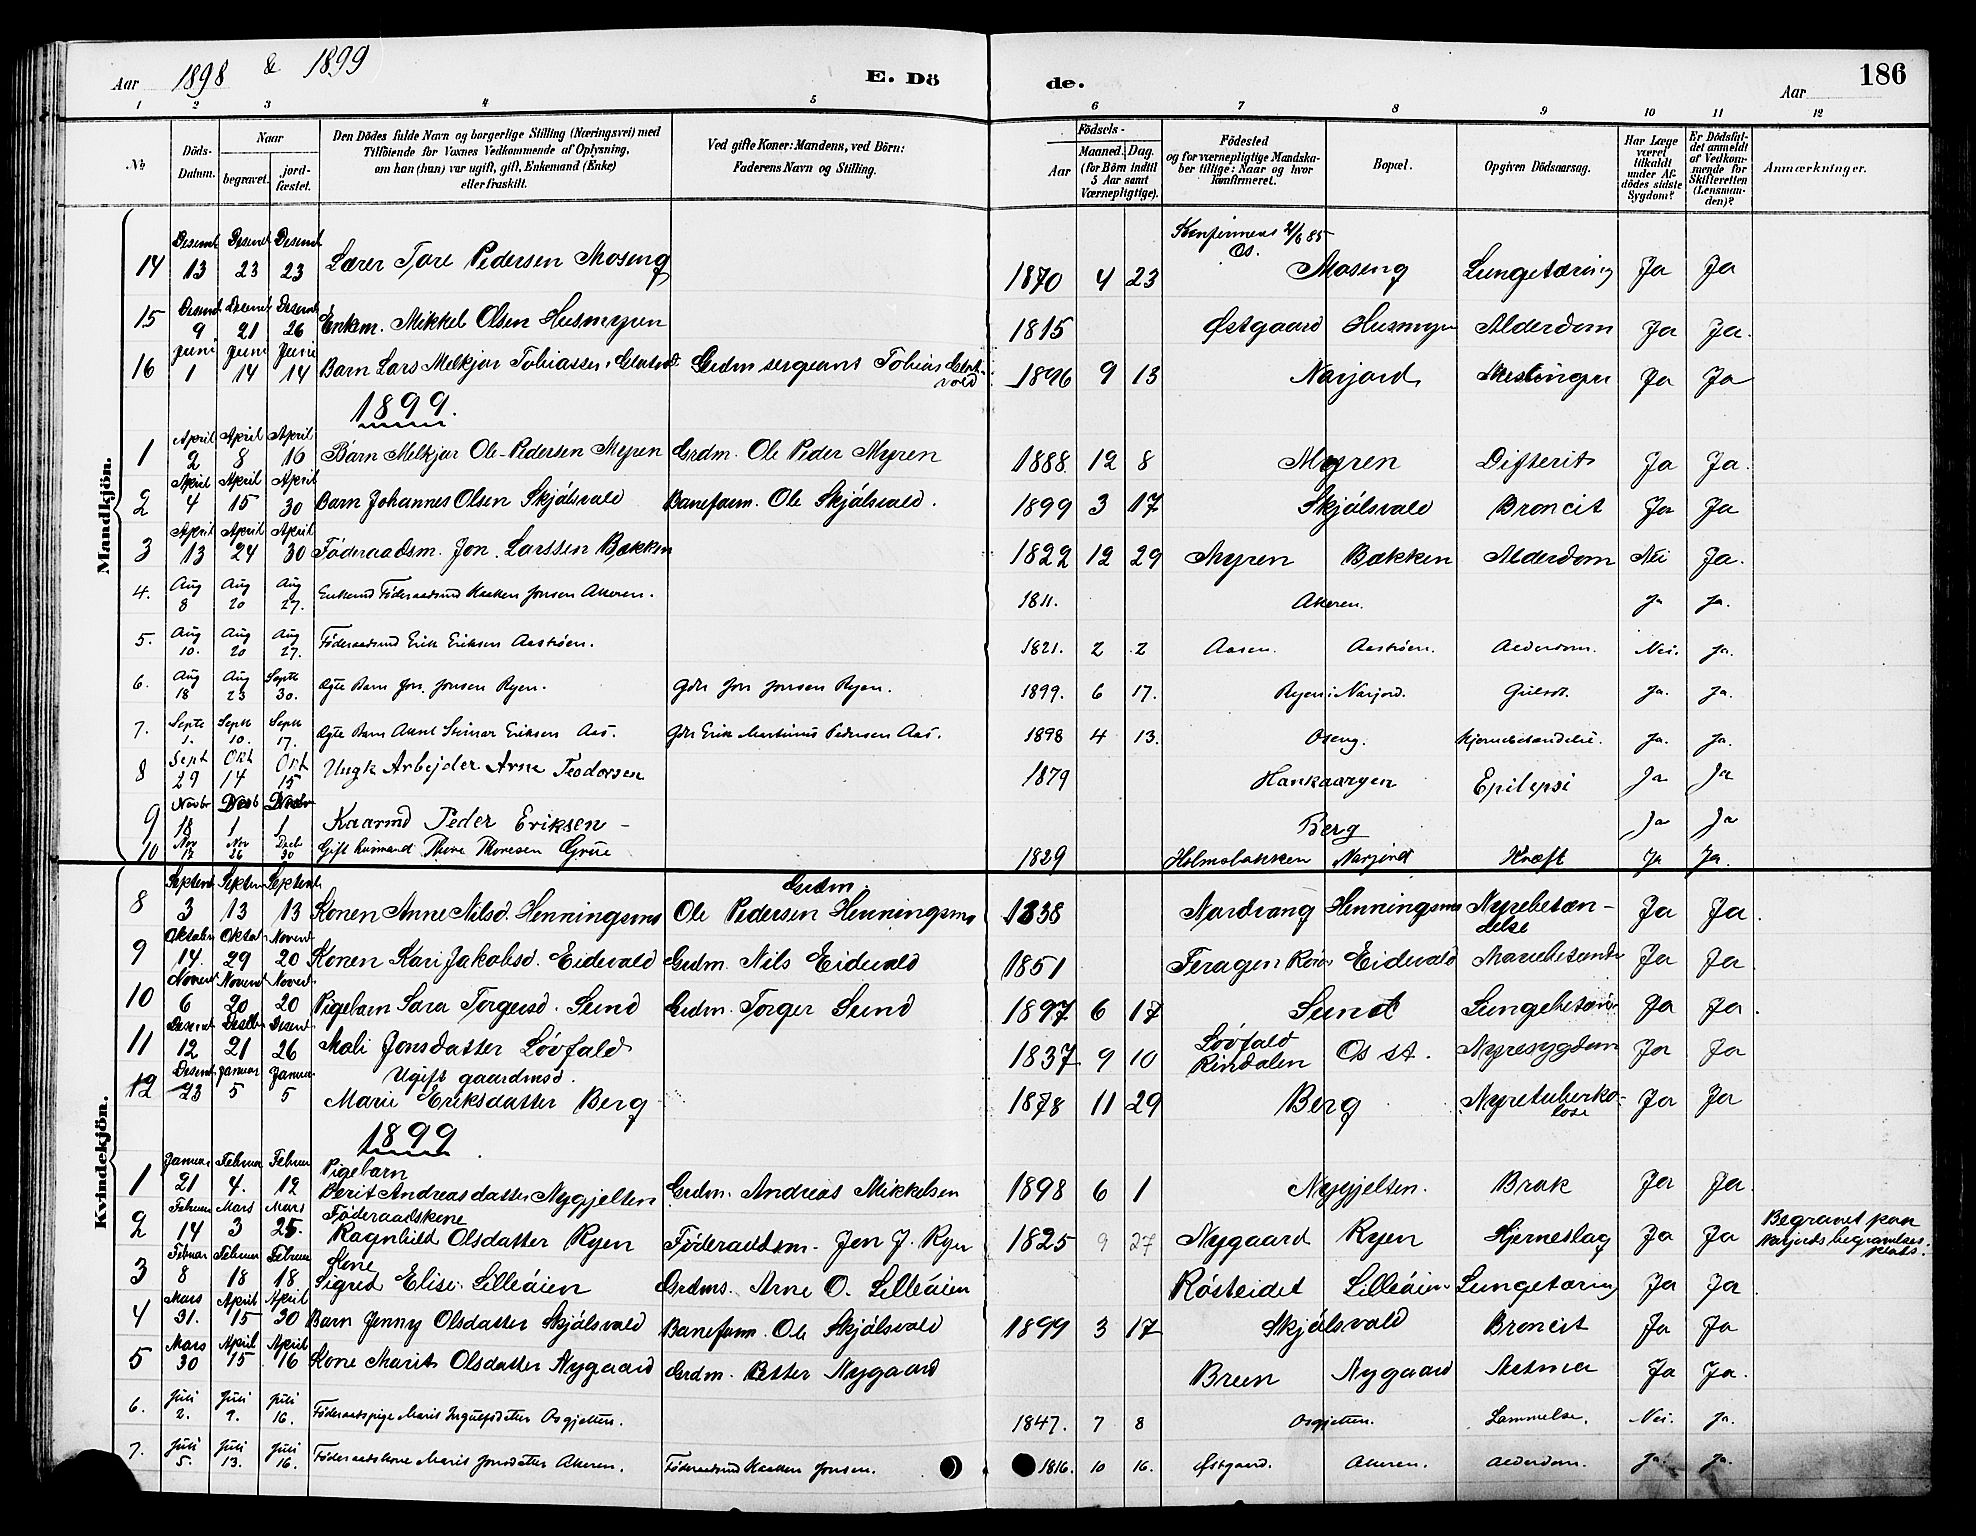 Aar 1898 & 1899 E. Dö de. Aar 186
1 2 3 4 5 6 7 8 9 10 11 12
№ Döds-Datum. Naar begravet. jord-fæstet. Den Dödes fulde Navn og borgerlige Stilling (Næringsvei) med Tilföiende for Voxnes Vedkommende af Oplysning, om han (hun) var ugift, gift, Enkemand (Enke) eller fraskilt. Ved gifte Koner: Mandens, ved Börn: Faderens Navn og Stilling. Födsels- Aar Maaned. Dag. (for Börn indtil 5 Aar samt Værnepligtige). Födested og for værnepligtige Mandskaber tillige: Naar og hvor konfirmeret. Bopæl. Opgiven Dödsaarsag. Har Læge været tilkaldt under Afdödes sidste Sygdom? Er Dödsfaldet anmeldt af Vedkommende for Skifteretten (Lensmanden)? Anmærkninger.
Mandkjön.
Desemt Desemt Desemt Konfirmeret 21/6 85 Os.
14 13 23 23 Lærer Tore Pedersen Moseng 1870 4 23 Moseng Lungetæring Ja Ja
Desemt Desemt Desemt
15 9 21 26 Enkm. Mikkel Olsen Husmyren 1815 Østgaard Husmyr Alderdom Ja Ja.
Juni Juni Juni
16 1 14 14 Barn Lars Melkjor Tobiassen Grdm sergeant Tobias 1896 9 13 Narjord Ja Ja
1899.
April April April
1 2 8 16 Barn Melkjor Ole-Pedersen Myren Grdm. Ole Peder Myren 1888 12 8 Myren Difterit Ja Ja.
April April April
2 4 15 30 Barn Johannes Olsen Skjålsvold Baneform. Ole Skjålsvold. 1899 3 17 Skjålsvold Broncit Ja Ja
April April April
3 13 24 30 Föderaadsm. Jon Larssen Bækken 1822 12 29 Myren Bækken Alderdom Nei Ja.
Aug Aug Aug
4. 8 20 27. Enkemd Föderaadsmd Jonsen Akeren. 1811. Akeren. Ja Ja.
Aug Aug Aug
5. 10. 20 27. Föderaadsmd Erik Eriksen Aastrøen. 1821. 2 2 Aasen. Aastrøen. Alderdom. Nei. Ja.
Aug Aug Septb
6. 18 23 30. Ægte Barn Jon Jonsen Ryen. Gdr Jon Jonsen Ryen. 1899. 6 17. Ryen i Narjord. Ja. Ja.
Septb Septb Septb
7. 1. 10. 17. Ægte Barn Steinar Eriksen Aas. Gdr Erik Martinus Pedersen Aas. 1898 4 13. Oseng. Hjernebetændelse. Ja. Ja.
Sept Okt Okt
8 29 14 15 Ungk Arbejder Arne Teodorsen 1879 Epilepsi Ja Ja
9 18 1 1 Kaarmd Peder Eriksen - Berg Ja Ja
Nov Nov Decb
10 17 26 30 Gift husmand Thore Thoresen Grue 1829 Holmsbakken Narjord Kræft Ja Ja.
Kvindekjön.
Septemt Septem Septemt Grdm.
8 3 13 13 Konen Anne Nilsd. Henningsmo Ole Pedersen Henningsmo 1838 Nordvang Henningsmo Nyrebetæn-delse Ja Ja.
Oktober Oktob Novem
9 14. 29 20 Konen Kari Jakobsd. Eidevold Grdm. Nils Eidevold 1851 Feragen Røros Eidevold Mavebetænd Ja Ja
Novem Novem Novem
10 6 20 20 Pigebarn Sara Torgersd. Sund Grdm. Torger Sund 1897 6 17 Sund Lungebetæn Ja Ja.
Desemt Desbr Desemt
11 12 21 26 Mali Jonsdatter Løvfald 1837 9 10 Løvfald Rindalen Os st. Nyresygdom Ja Ja
Desemt Januar Januar Ugift gaardmsd.
12 23 5 5 Marie Eriksdatter Berg 1878 11 29 Berg Nyretuberko-lose Ja Ja
1899
Januar Februar Februar Pigebarn
1 21 4. 12 Berit Andreasdatter Nygjelten Grdm. Andreas Mikkelsen 1898 6 1 Nygjelten. Brok Ja Ja.
Februar Mars Mars Föderaadskone
2 14 3 25. Ragnhild Olsdatter Ryen Föderaadsm. Jon J. Ryen 1825 9 27 Nygaard Ryen Hjerneslag Ja Ja Begravet paa Narjords begravelses-plads.
Februar Februar Februar Kone
3 8 18 18 Sigrid Elise Lilleåien Grdms. Arne O. Lilleåien Røsteidet Lilleåien Lungetæring Ja Ja.
Mars April April
4 31. 15 30 Barn Jenny Olsdatter Skjålsvold Baneform. Ole Skjålsvold 1899 3 17 Skjålsvold Broncit Ja Ja
Mars April April
5 30 15 16 Kone Marit Olsdatter Nygaard Grdm. Petter Nygaard Breen Nygaard Astma Ja Ja.
Juli Juli Juli
6. 2. 9. 16. Föderaadspige Marit Ingulfsdatter Osgjelten. 1847. 7 8 Osgjelten. Lammelse. Nei. Ja.
Juli Juli Juli
7. 5. 13. 16. Föderaadskone Marit Jonsdatter Akeren. Föderaadsmd Jonsen. 1816. 10 16. Østgaard. Akeren. Alderdom. Ja. Ja.